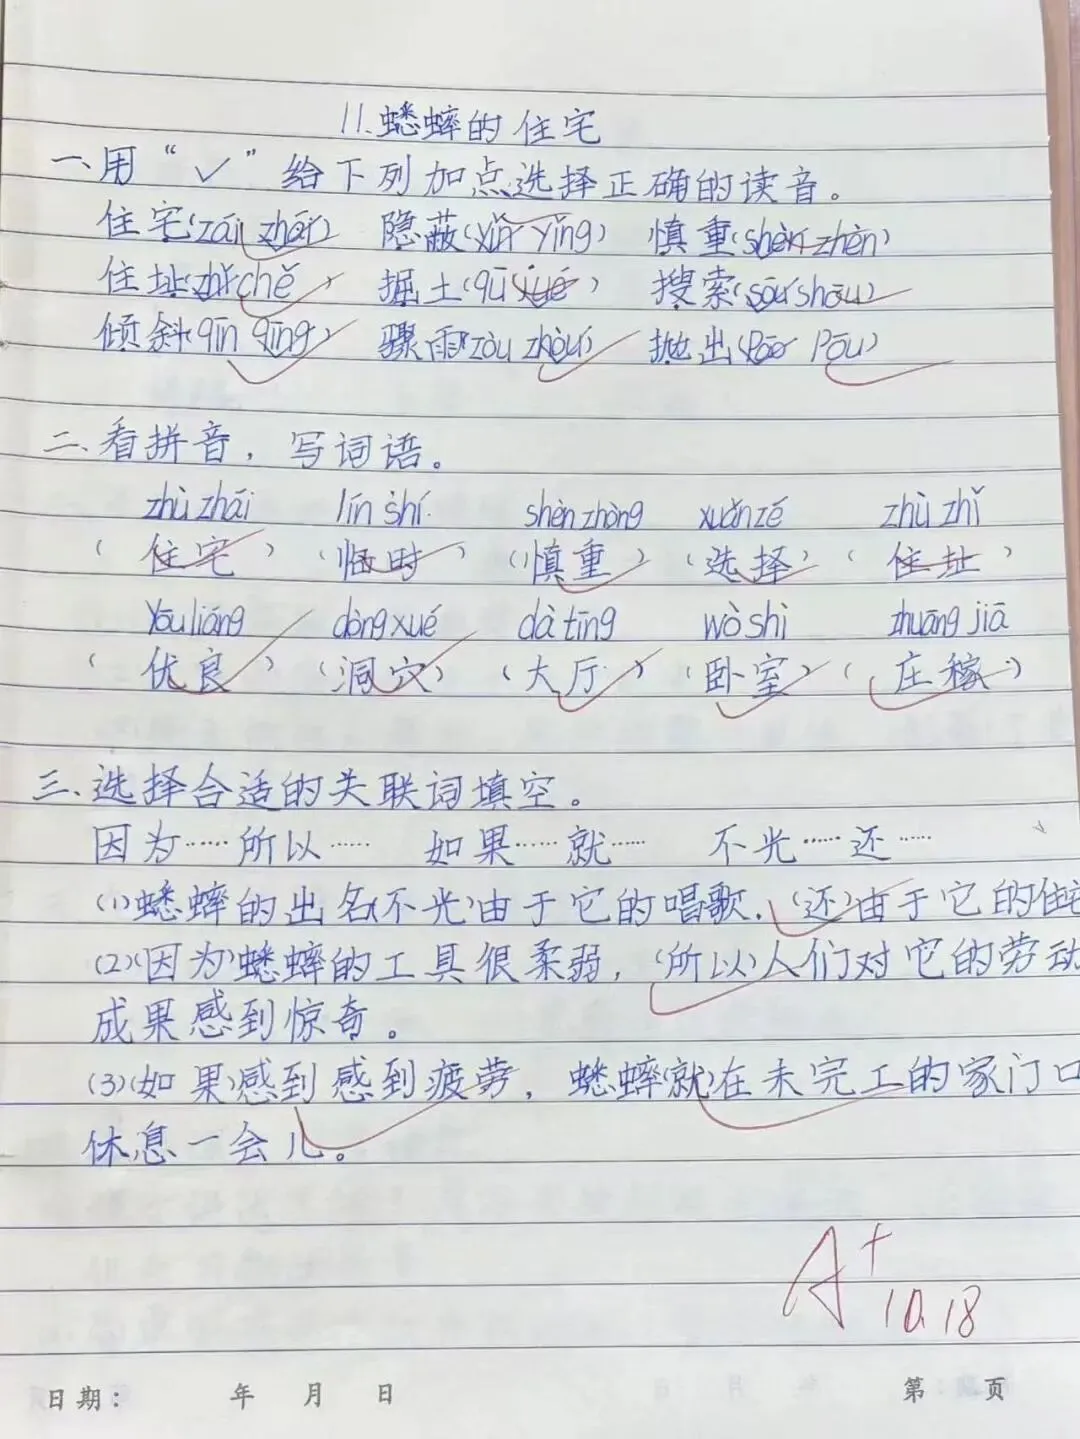 11.蟋蟀的住宅
一、用“✓”给下列加点选择正确的读音。
住宅(zái zhái) 隐蔽(yǐn yǐng) 慎重(shèn zhèn)
住址(zhǐ chě) 掘土(qū jué) 搜索(sōu shōu)
倾斜(qīn qīng) 骤雨(zòu zhòu) 抛出(pāo pōu)
二、看拼音，写词语。
zhù zhái lín shí shèn zhòng xuǎn zé zhù zhǐ
(住宅) (临时) (慎重) (选择) (住址)
yōu liáng dòng xué dà tīng wò shì zhuāng jiā
(优良) (洞穴) (大厅) (卧室) (庄稼)
三、选择合适的关联词填空。
因为……所以…… 如果……就…… 不光……还……
(1)蟋蟀的出名(不光)由于它的唱歌，(还)由于它的住宅
(2)(因为)蟋蟀的工具很柔弱，(所以)人们对它的劳动
成果感到惊奇。
(3)(如果)感到感到疲劳，蟋蟀(就)在未完工的家门口
休息一会儿。
A+
10.18
日期： 年 月 日 第 页